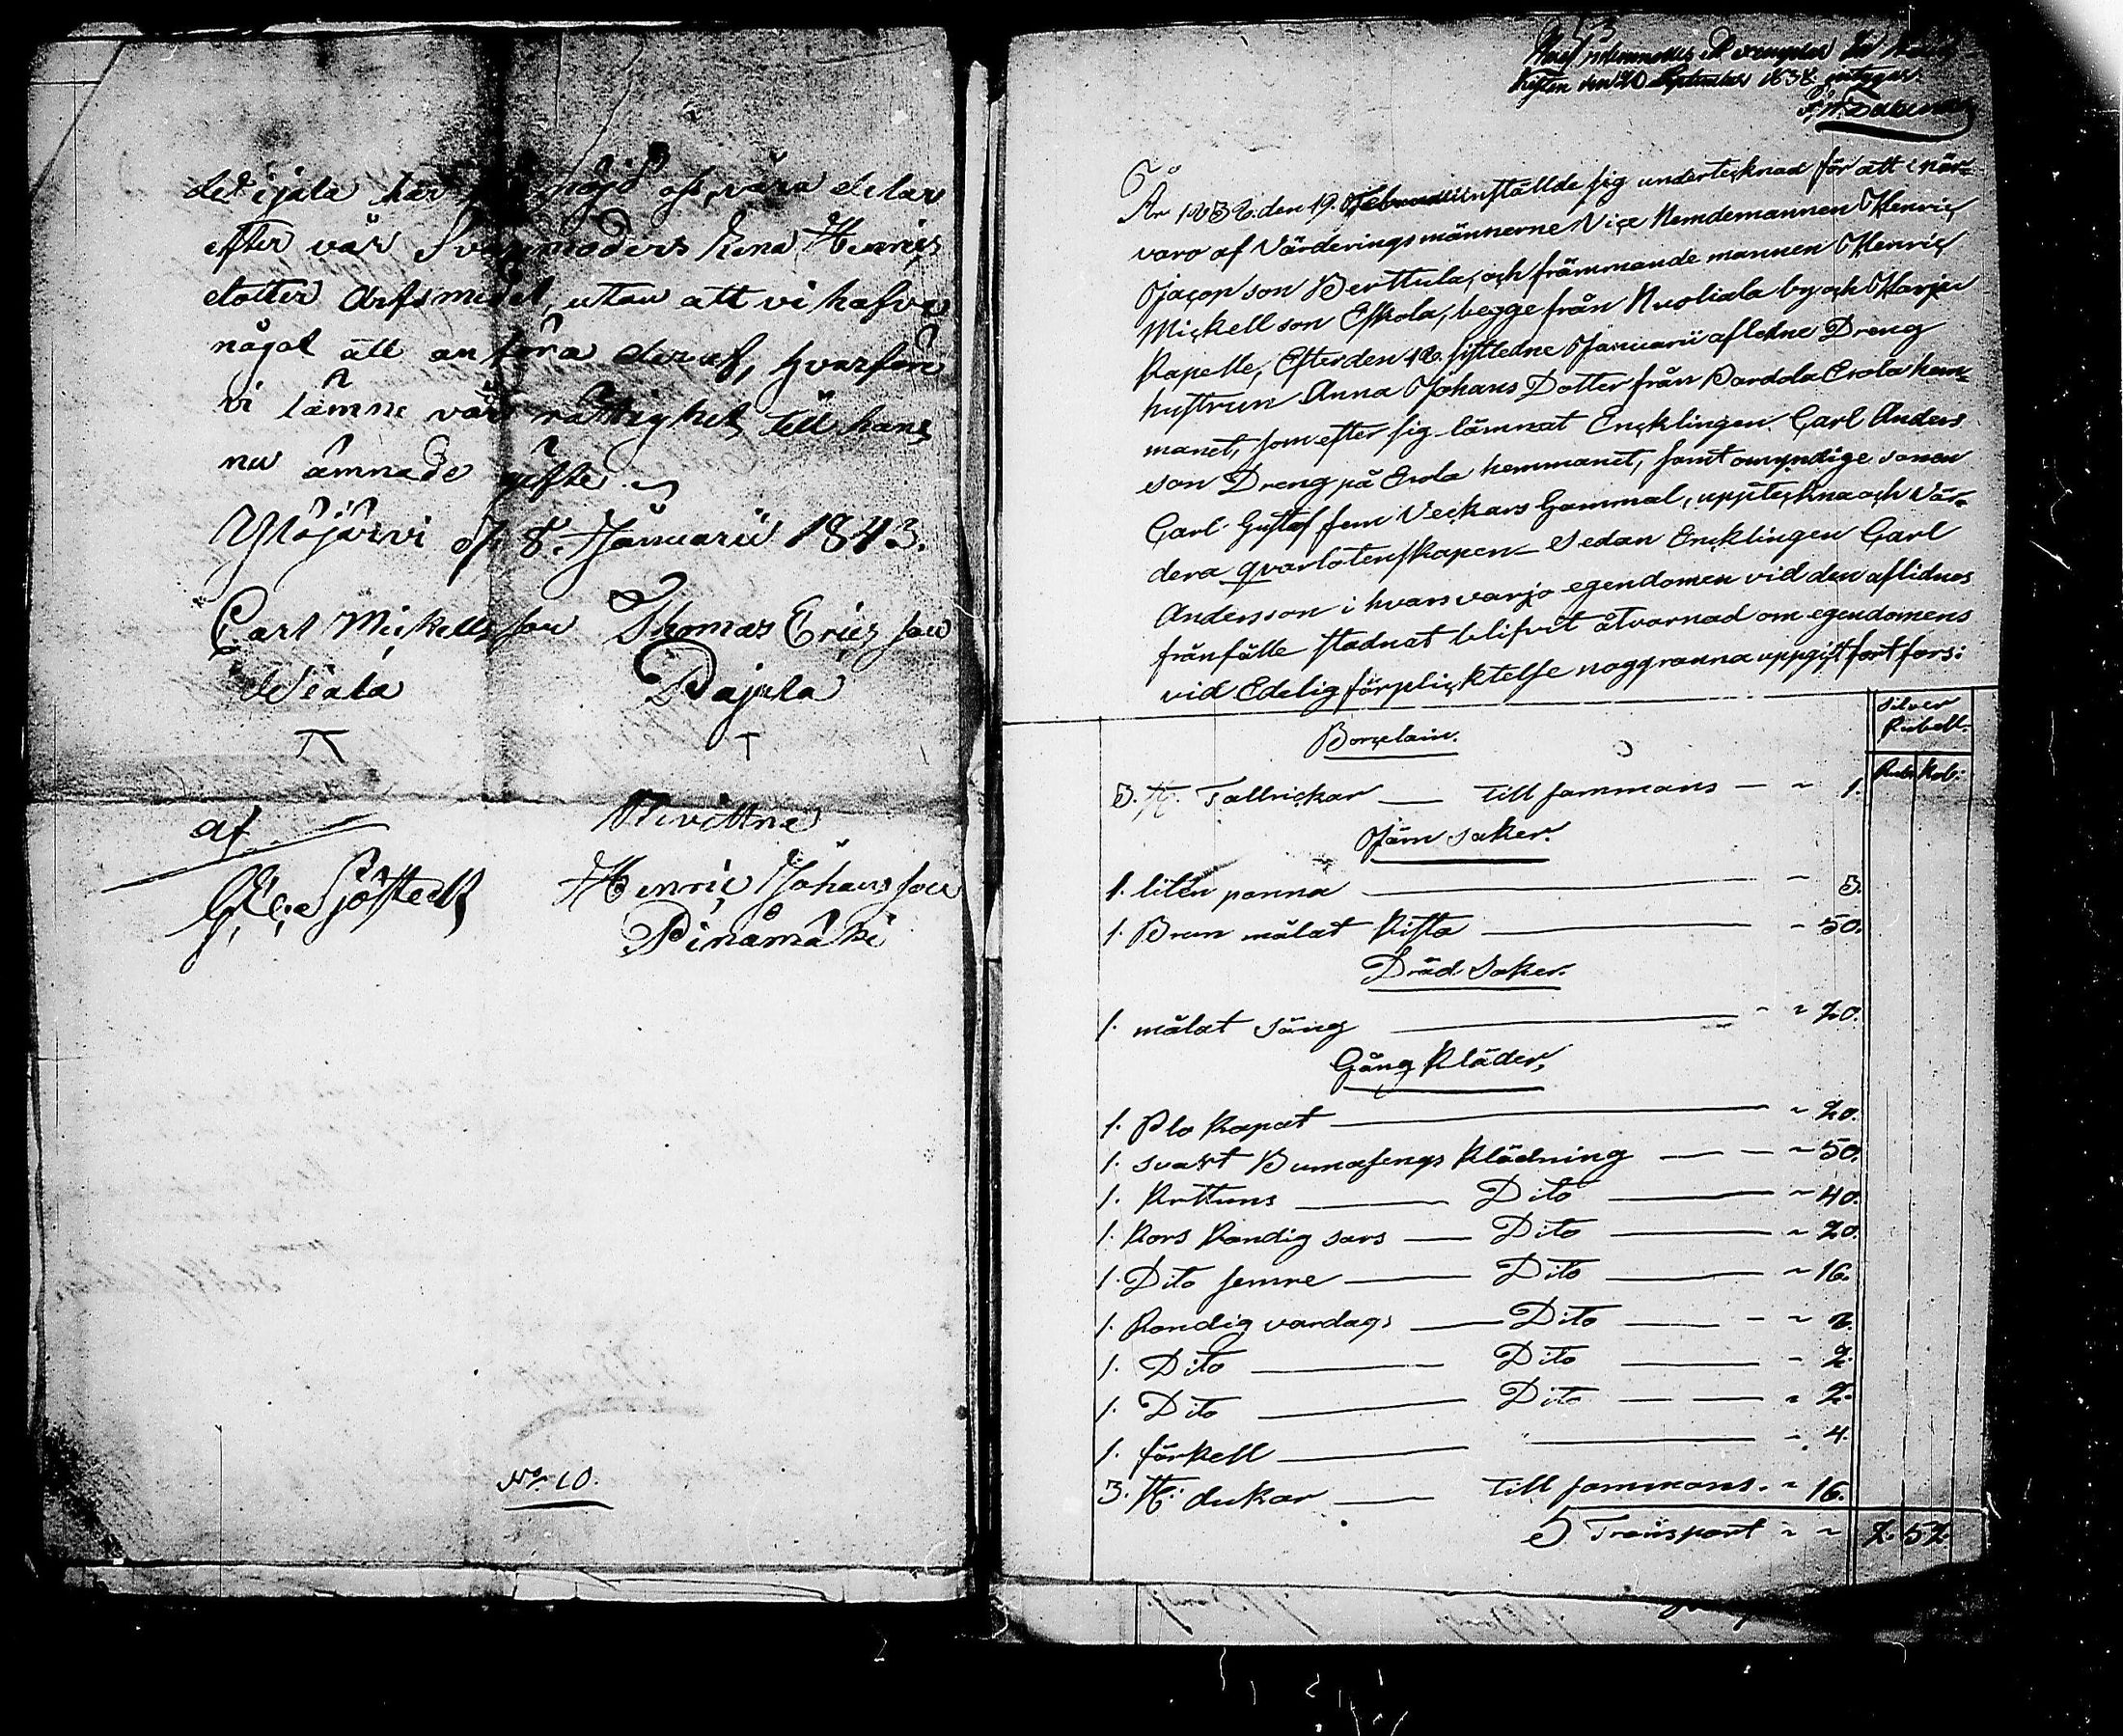 det ijala har nöjd oss, våra delar
efter vår Svärmoders Lena Henrics
dotter arfsmedel, utan att vi hafva
något att anföra deruf, hvarföre
vi lämne vår rättighet till hans
nu ämnade gifte.
Ylöjärvi d. 8. Januarii 1843.
Carl Mickells son Thomas Erics son
Wiala Pajula
af Bevittna
G. C. Sjöstedt Henric Johans son
Pinämäki
No. 10.
den 20 September 1838 intygar
År 1838. den 19. Februarii inställde sig undertecknad för att i när-
varo af Värderingsmännerne Vice Nemdemannen Henric
Jacop son Berttula, och främmande mannen Henric
Mickell son Eskola, begge från Nuoliala by och Harju
Kapelle, Efter den 18. sistledne Januarii afledne Dreng
hustrun Anna Johans Dotter från Pardola Erola hem-
manet, som efter sig lämnat Encklingen Carl Anders
son Dreng på Erola hemmanet, samt omyndige sonen
Carl Gustaf fem Veckars Gammal, uppteckna och Vär-
dera qvarlotenskapen Sedan Encklingen Carl
Andersson i hvars varjo egendomen vid den aflidnas
frånfälle stadnat blifvit åtvarnad om egendomens
vid Edelig förplicktelse noggranna uppgift fortfors:
Silver
Rubell.
Porcelain.
Rub. Kob:
3. St. Tallrickar till sammans 1.
Järn saker.
1. liten panna 3.
1. Brun målat Kista 50.
Träd Saker.
1. målat säng 20.
Gång Kläder,
1. Blo Kapat 20.
1. svart Bumasengs Klädning 50.
1. Kattuns Dito 40.
1. Kors Randig sars Dito 20.
1. Dito semre Dito 16.
1. Randig vardags Dito 8.
1. Dito Dito 2.
1. Dito Dito 2.
1. förkell 4.
3. St: dukar till sammans. 16.
Transport 2. 52.